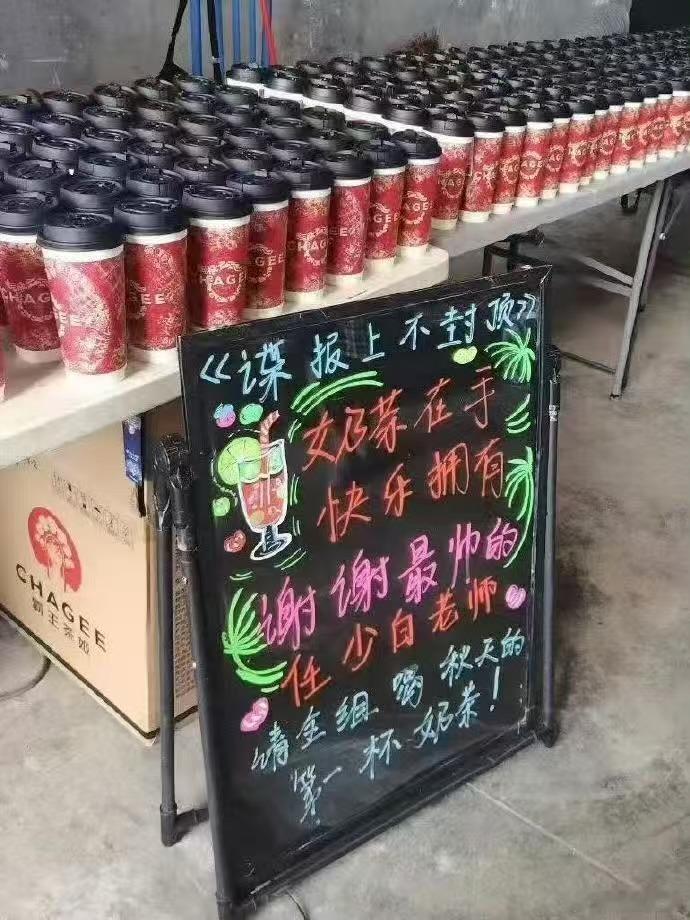 CHAGEE
CHAGEE
CHAGEE
CHAGEE
CHAGEE
CHAGEE
霸王茶姬
《谍报上不封顶》
奶茶在手
快乐拥有
谢谢最帅的
任少白老师
请全组喝秋天的
第一杯奶茶!